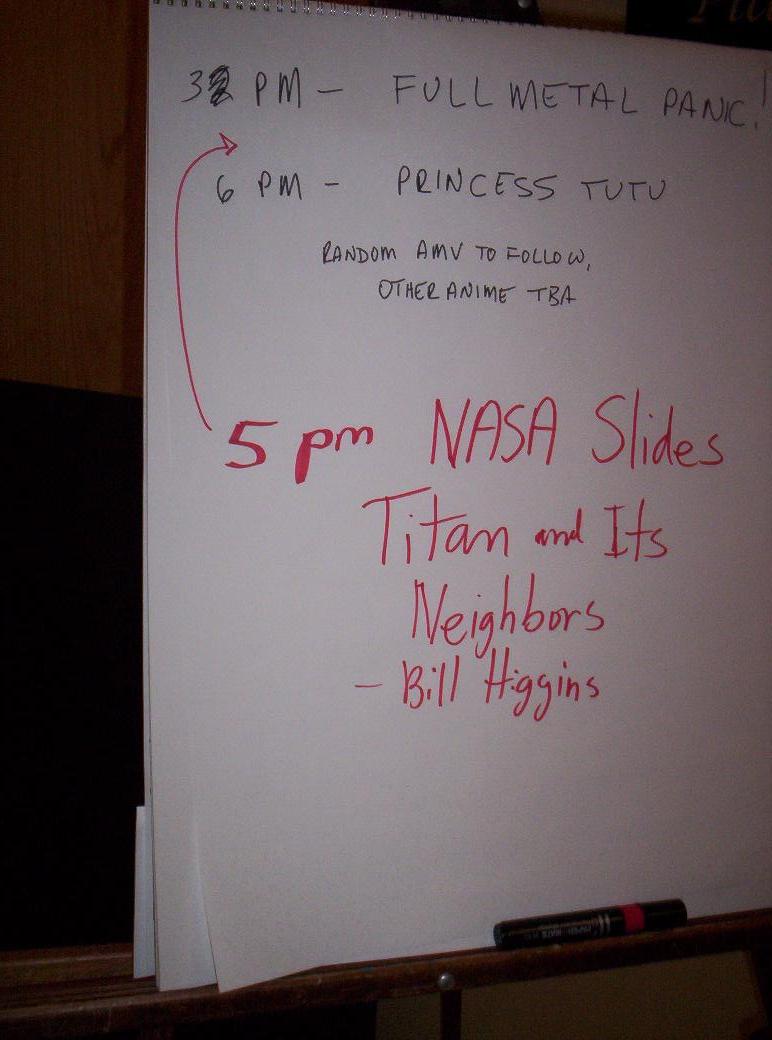 3 PM – FULL METAL PANIC!
6 PM – PRINCESS TUTU
RANDOM AMV TO FOLLOW,
OTHER ANIME TBA
5 pm NASA Slides
Titan and Its
Neighbors
– Bill Higgins